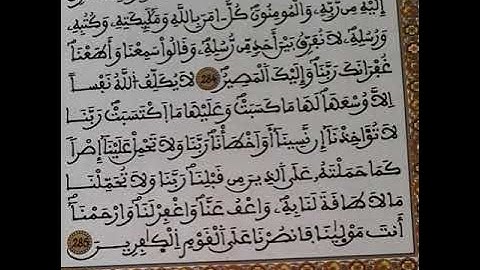 إِلَيْهِ مِن رَّبِّهِۦ وَالْمُومِنُونَ كُلٌّ ـ امَنَ بِاللَّهِ وَمَلَٰٓئِكَتِهِۦ وَكُتُبِهِۦ
وَرُسُلِهِۦ لَا نُفَرِّقُ بَيْنَ أَحَدٍ مِّن رُّسُلِهِۦ وَقَالُوا سَمِعْنَا وَأَطَعْنَا
غُفْرَانَكَ رَبَّنَا وَإِلَيْكَ الْمَصِيرُ 284 لَا يُكَلِّفُ اللَّهُ نَفْساً
اِلَّا وُسْعَهَا لَهَا مَا كَسَبَتْ وَعَلَيْهَا مَا اَكْتَسَبَتْ رَبَّنَا
لَا تُؤَاخِذْنَا إِن نَّسِينَا أَوَ اَخْطَأْنَا رَبَّنَا وَلَا تَحْمِلْ عَلَيْنَا إِصْراً
كَمَا حَمَلْتَهُۥ عَلَى الَّذِينَ مِن قَبْلِنَا رَبَّنَا وَلَا تُحَمِّلْنَا
مَا لَا طَاقَةَ لَنَا بِهِۦ وَاعْفُ عَنَّا وَاغْفِرْ لَنَا وَارْحَمْنَا
أَنتَ مَوْلَٰينَا فَانصُرْنَا عَلَى الْقَوْمِ الْكَٰفِرِينَ 285